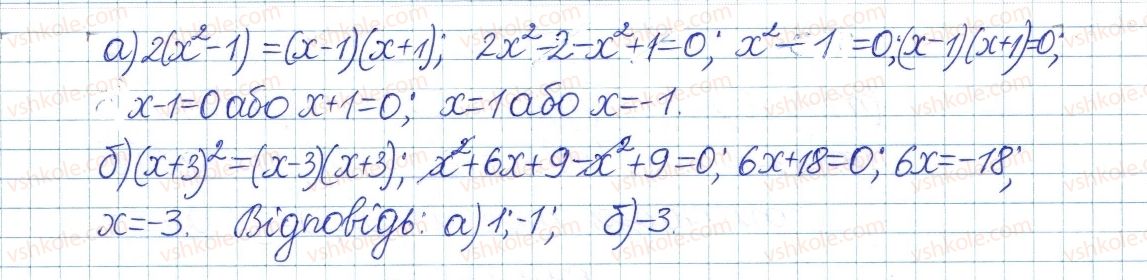 а) 2(x²-1) = (x-1)(x+1); 2x²-2-x²+1=0; x²-1=0; (x-1)(x+1)=0;
x-1=0 або x+1=0; x=1 або x=-1.
б) (x+3)² = (x-3)(x+3); x²+6x+9-x²+9=0; 6x+18=0; 6x=-18;
x=-3. Відповідь: а) 1;-1; б) -3.